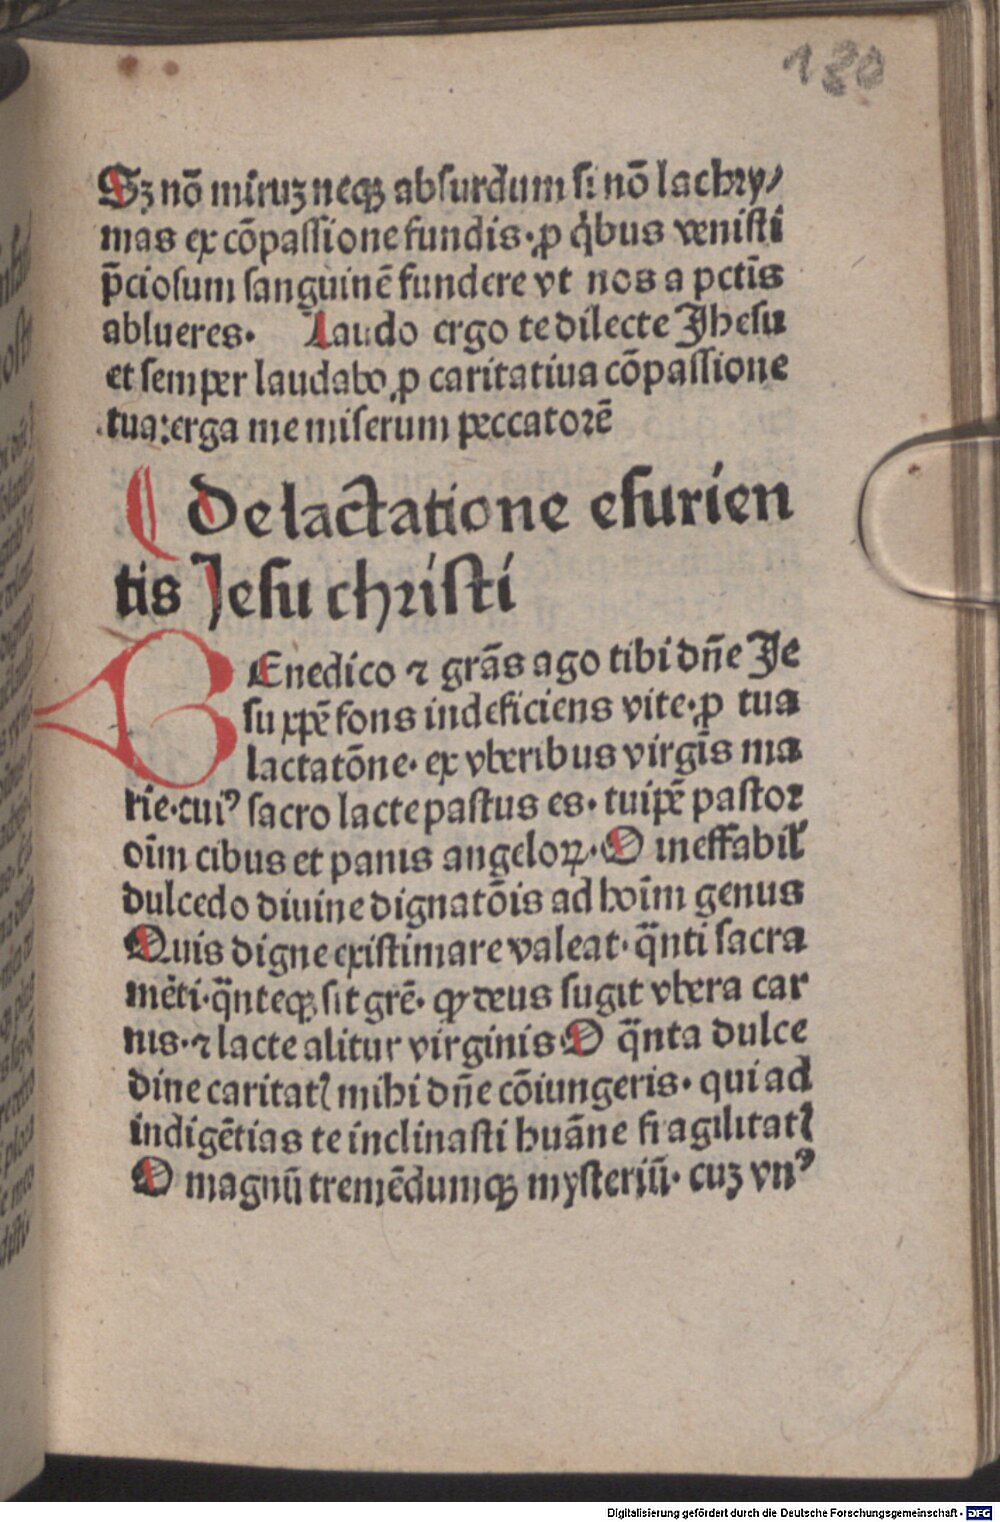 180
Sꝫ nō miruꝫ neqꝫ absurdum si nō lachry/
mas ex cōpassione fundis·ꝓ qͥbus venisti
p̄ciosum sanguinē fundere vt nos a pctīs
ablueres· Laudo ergo te dilecte Jhesu
et semper laudabo ꝓ caritatiua cōpassione
tua:erga me miserum peccatorē
¶ De lactatione esurien
tis Jesu christi
BEnedico ⁊ grās ago tibi dn̄e Je
su xp̄e fons indeficiens vite·ꝓ tua
lactatōne· ex vberibus virgīs ma
rie·cuiꝰ sacro lacte pastus es· tuip̄e pastor
oīm cibus et panis angeloꝝ· O ineffabil̛
dulcedo diuine dignatōis ad hoīm genus
Quis digne existimare valeat· qͣnti sacra
mēti·qͣnteqꝫ sit grē· ꝙ deus sugit vbera car
nis·⁊ lacte alitur virginis O qͣnta dulce
dine caritatꝭ mihi dn̄e cōiungeris· qui ad
indigētias te inclinasti huāne fragilitatꝭ
O magnū tremēdumqꝫ mysteriū· cuꝫ vnꝰ
Digitalisierung gefördert durch die Deutsche Forschungsgemeinschaft - DFG